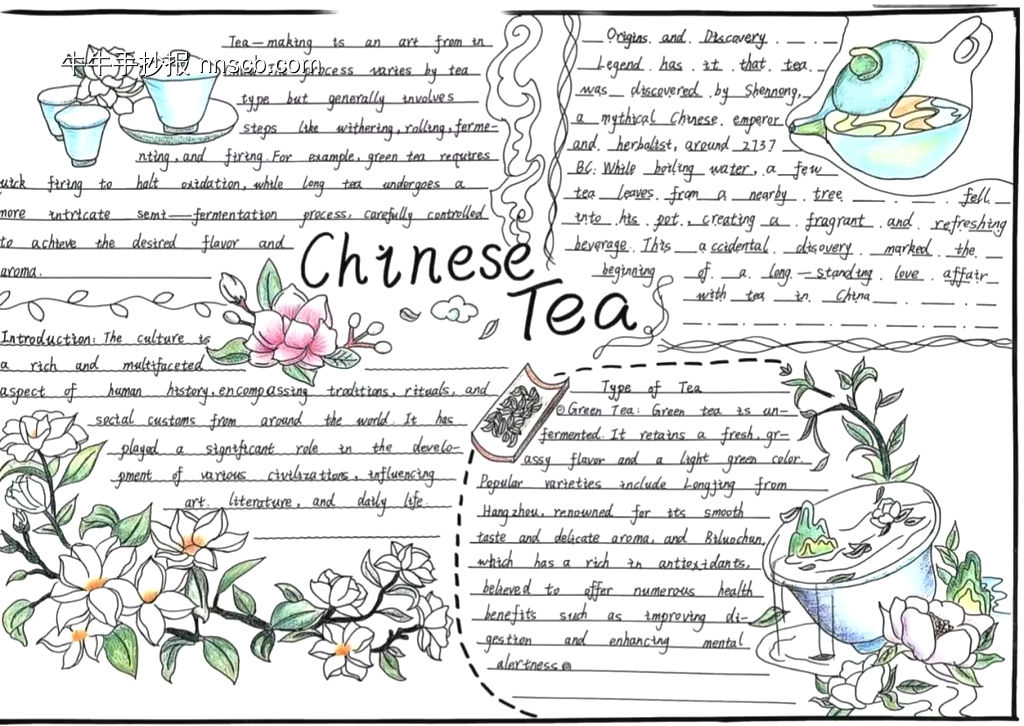 牛牛手抄报 nnscb.com
Tea—making is an art from in
process varies by tea
type but generally involves
steps like withering, rolling, ferme-
nting, and firing. For example, green tea requires
uick firing to halt oxidation, while long tea undergoes a
more intricate semi—fermentation process, carefully controlled
to achieve the desired flavor and
aroma.
Origins and Discovery
Legend has it that tea
was discovered by Shennong,
a mythical Chinese emperor
and herbalist, around 2737
BC. While boiling water, a few
tea leaves from a nearby tree fell
into his pot, creating a fragrant and refreshing
beverage. This accidental disovery marked the
beginning of a long—standing love affair
with tea in China
Chinese
Tea
Introduction: The culture is
a rich and multifaceted
aspect of human history, encompassing traditions, rituals, and
social customs from around the world. It has
played a significant role in the develo-
pment of various civilizations, influencing
art, literature, and daily life.
Type of Tea
Green Tea: Green tea is un-
fermented. It retains a fresh, gr-
assy flavor and a light green color.
Popular varieties include Longjing from
Hangzhou, renowned for its smooth
taste and delicate aroma, and Biluochun,
which has a rich in antioxidants,
believed to offer numerous health
benefits such as improving di-
gestion and enhancing mental
alertness